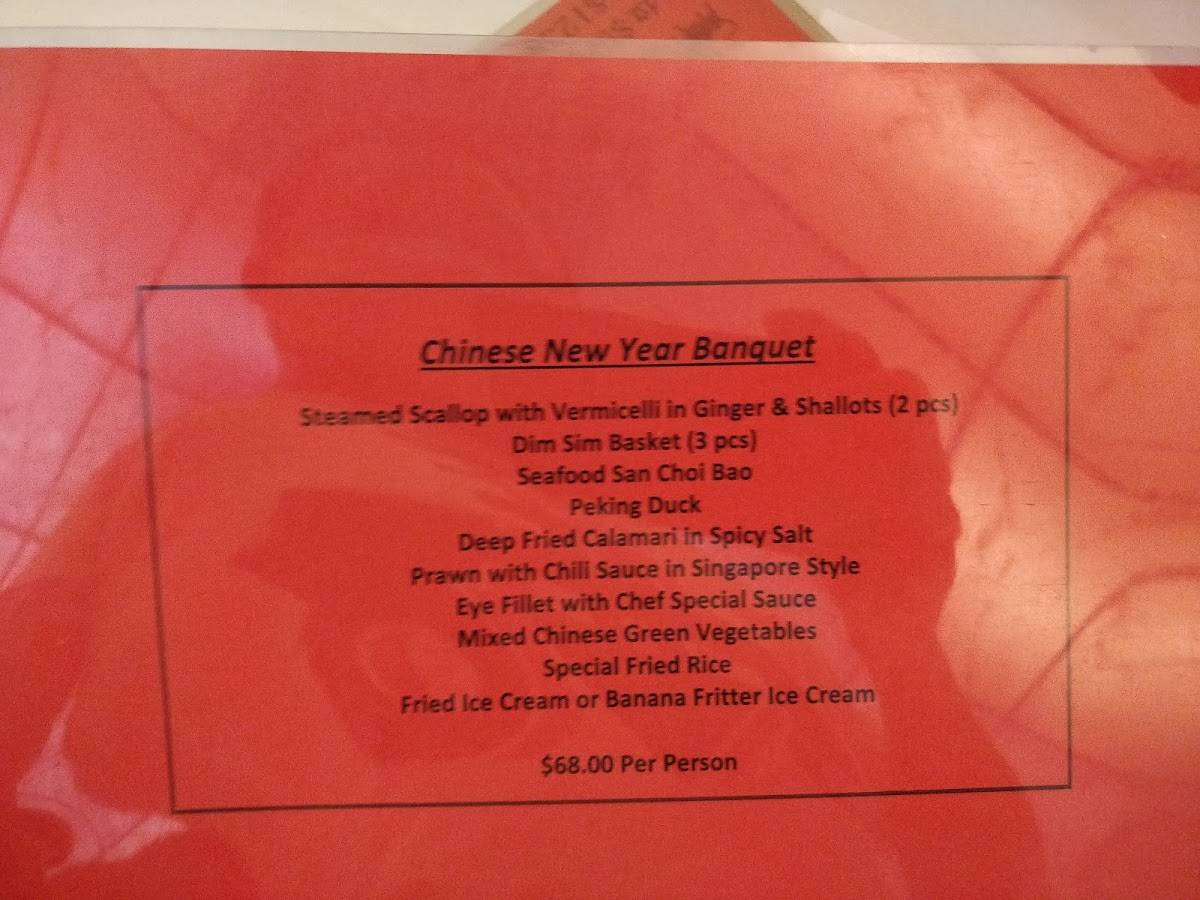 Chinese New Year Banquet
Steamed Scallop with Vermicelli in Ginger & Shallots (2 pcs)
Dim Sim Basket (3 pcs)
Seafood San Choi Bao
Peking Duck
Deep Fried Calamari in Spicy Salt
Prawn with Chili Sauce in Singapore Style
Eye Fillet with Chef Special Sauce
Mixed Chinese Green Vegetables
Special Fried Rice
Fried Ice Cream or Banana Fritter Ice Cream
$68.00 Per Person